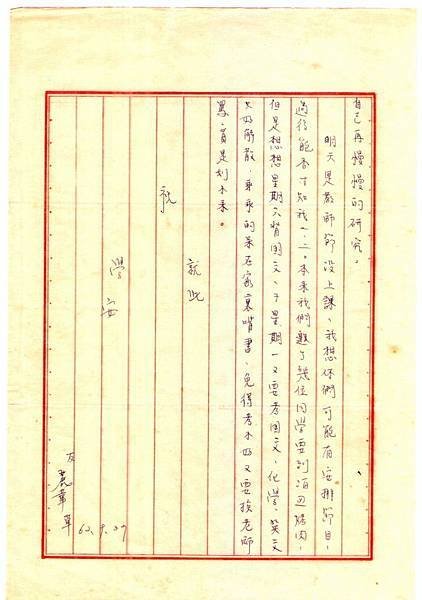 自己再慢慢的研究。
明天是教師節沒上課、我想你們可能有安排節目,
過後能否寸知我一、二。本來我們邀了幾位同學要到河邊烤肉,
但是想想星期六背國文、于星期一又要考國文、化學、英文
只好解散,乖乖的呆在家裏啃書,免得考不好又要挨老師
罵,真是划不來。
就此
祝
學
安
友
章草
62.9.27